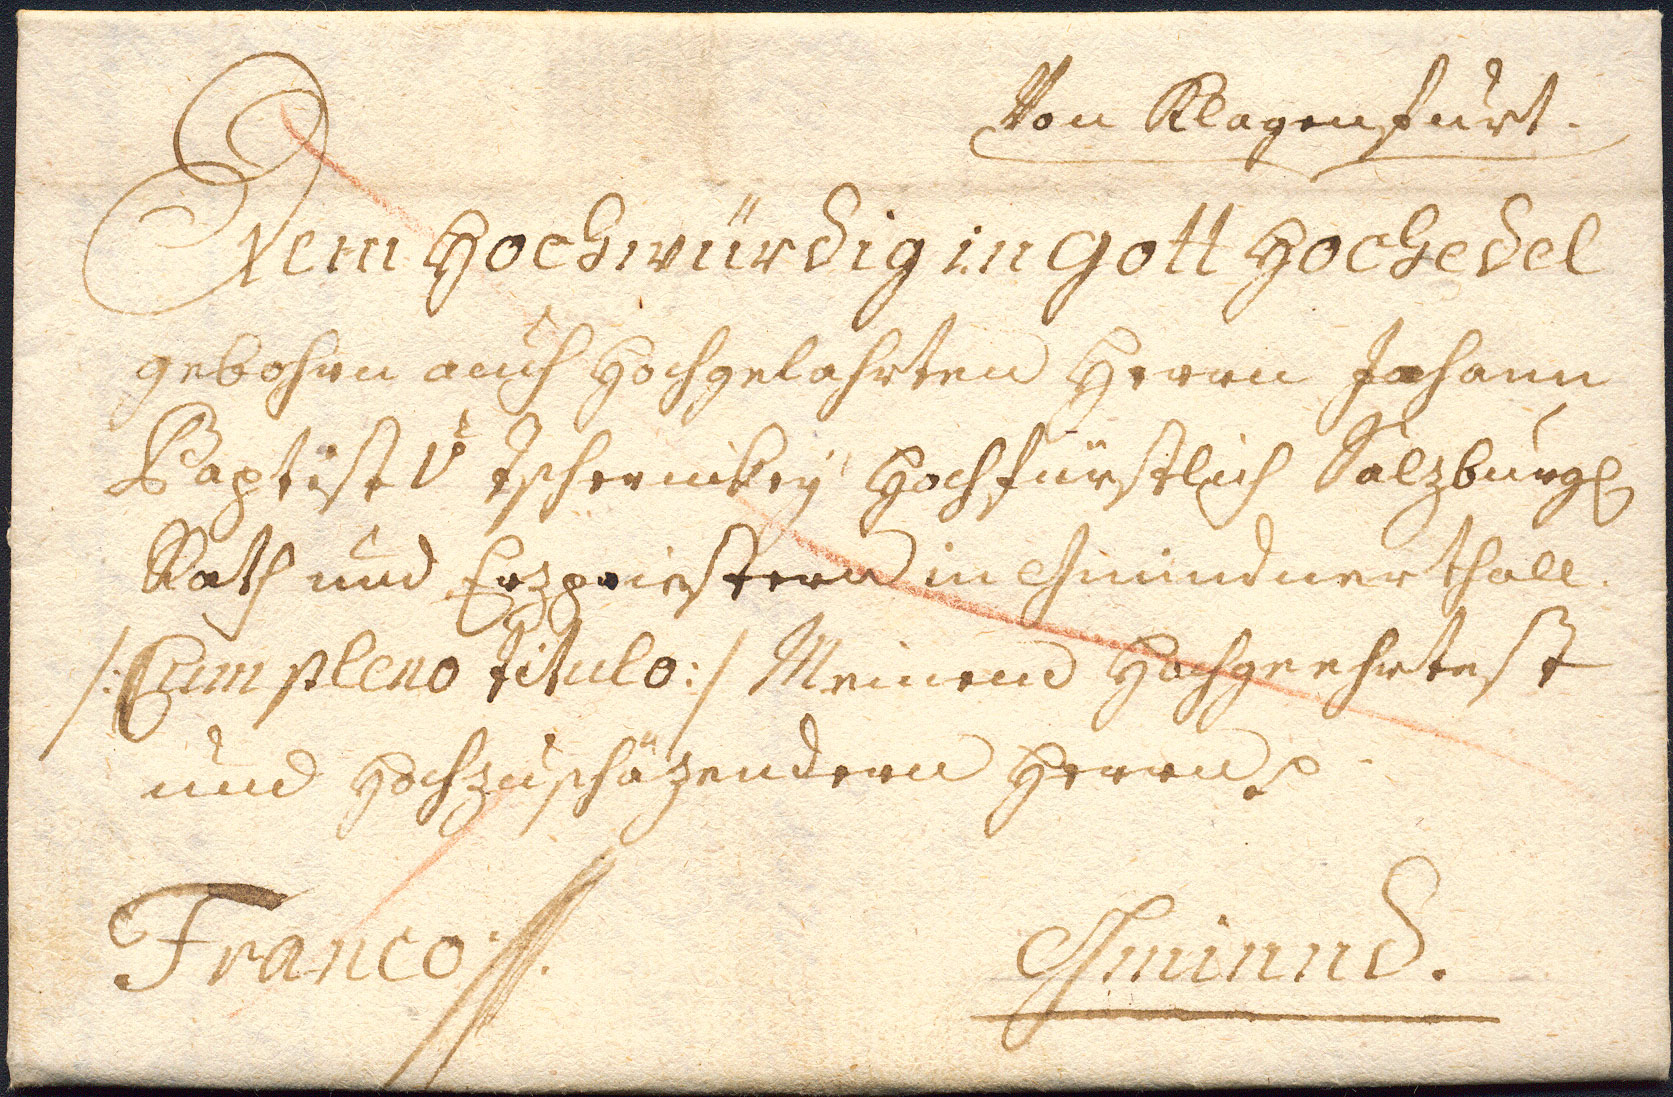 Von Klagenfurt.
Dem Hochwürdig in Gott Hochedel
gebohrn auch Hochgelahrten Herrn Johann
Baptist v Tschernikey Hochfürstlich Salzburgl
Rath und Erzpriestern in Gmündnerthall.
/:Cum pleno titulo:/ Meinem Hochgeehrtest
und Hochzuschäzendern Herrn
Franco
Gminnd.